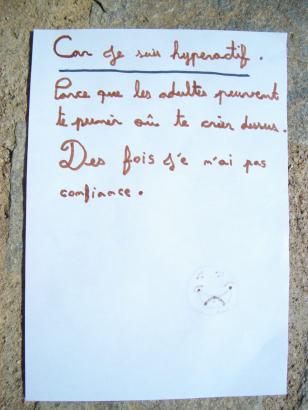 Car Je suis hyperactif.
Parce que les adultes peuvvent
te punir où te crier dessus.
Des fois j'e n'ai pas
confiance.